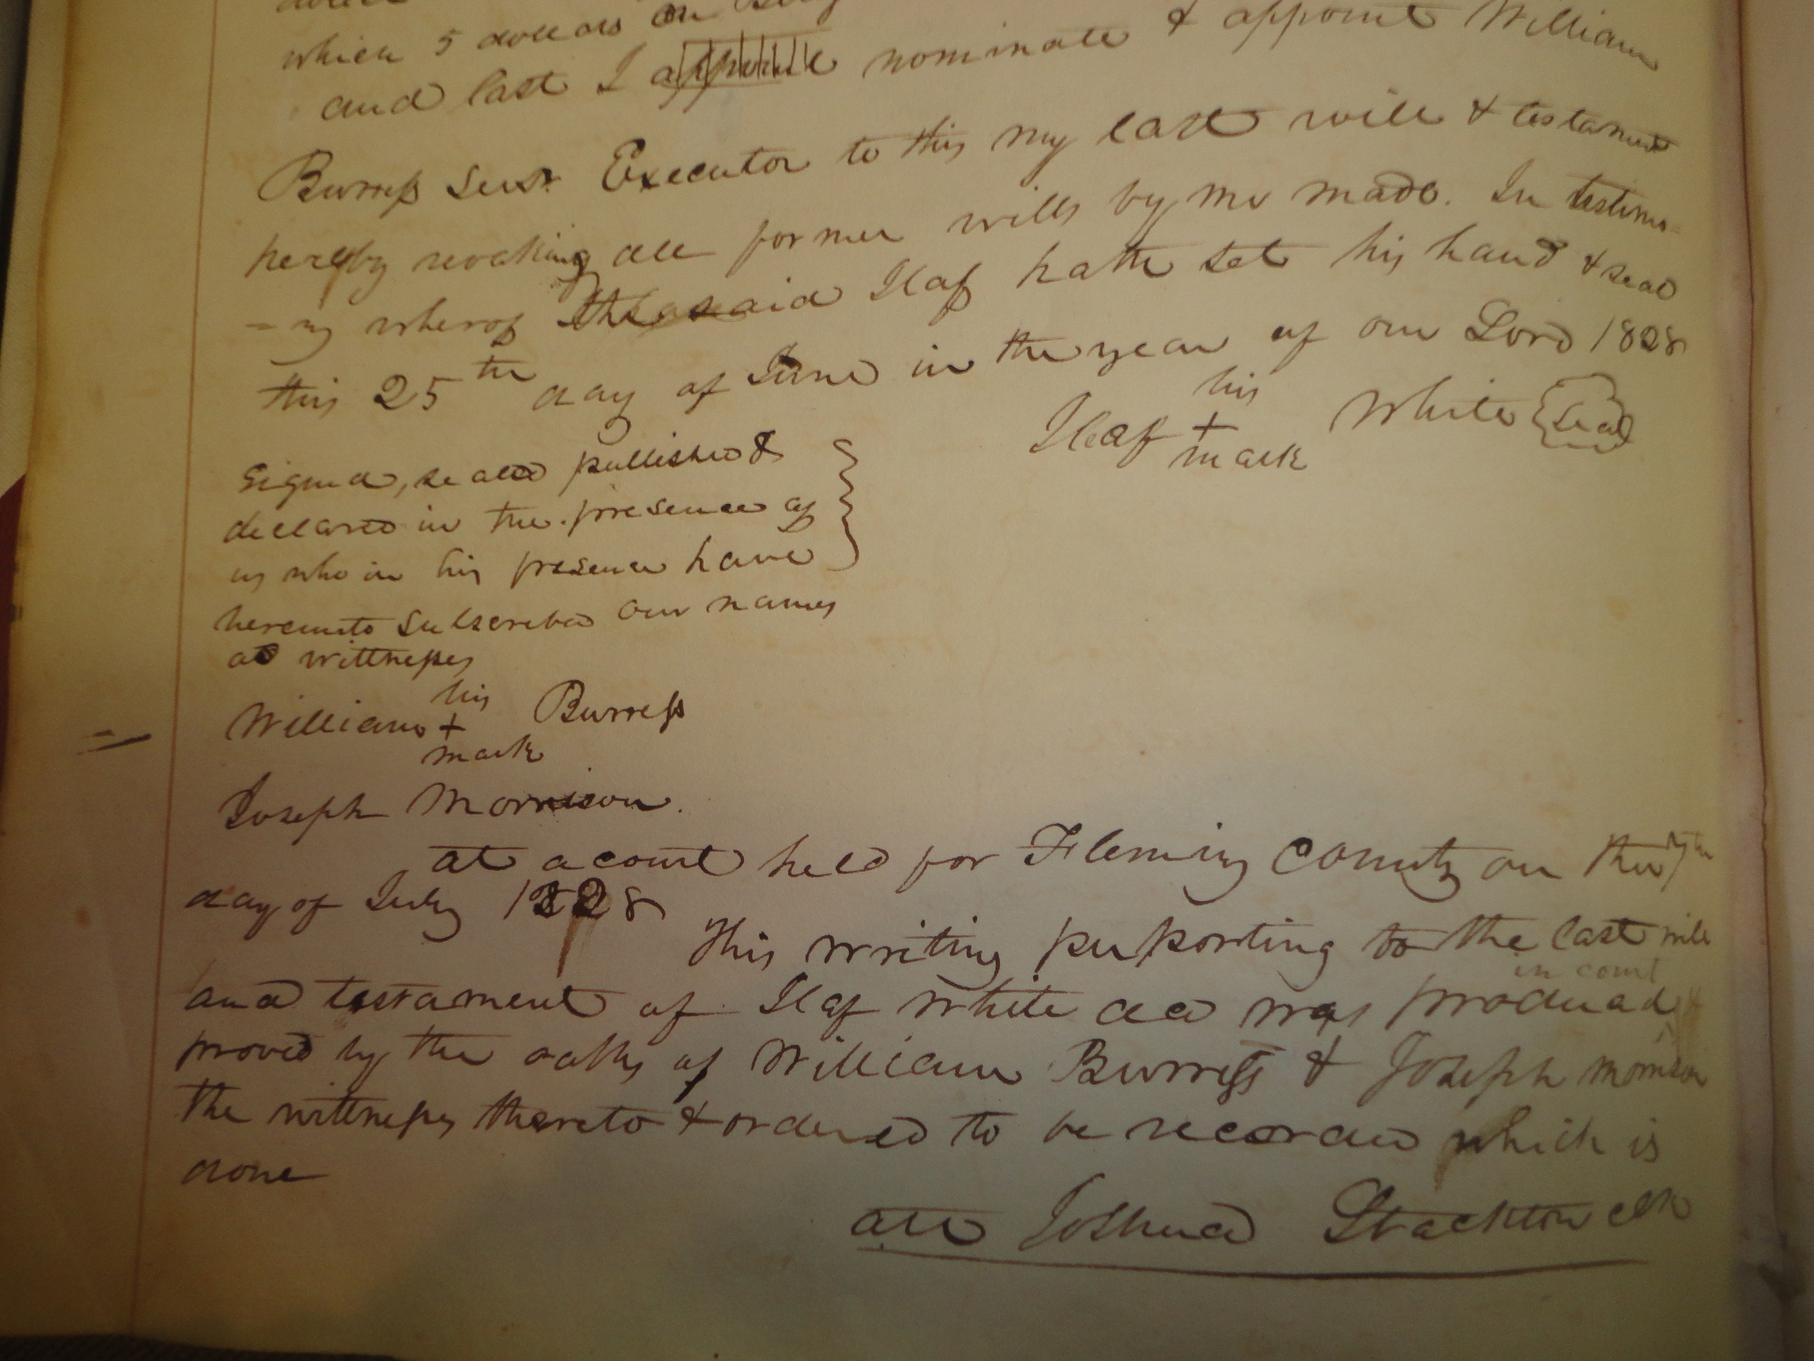 which 5 dollars
and last I nominate & appoint William
Burress Senr Executor to this my last will & testament
hereby revoking all former wills by me made. In testimo=
=ny wherof the said Ilaf hath set his hand & seal
this 25th day of June in the year of our Lord 1828
his
Ilaf + White {Seal}
mark
Signed, sealed published &
declared in the presence of
us who in his presence have
hereunto subscribed our names
as wittnesses
his
William + Burress
mark
Joseph Morrison.
at a court held for Fleming County on the
day of July 1828
This writing purporting to the last will
in court
and testament of Ilaf White decd was produced &
proved by the oaths of William Burress & Joseph Morrison
the wittnesses thereto & ordered to be recorded which is
done
att Joshua Stockton clk